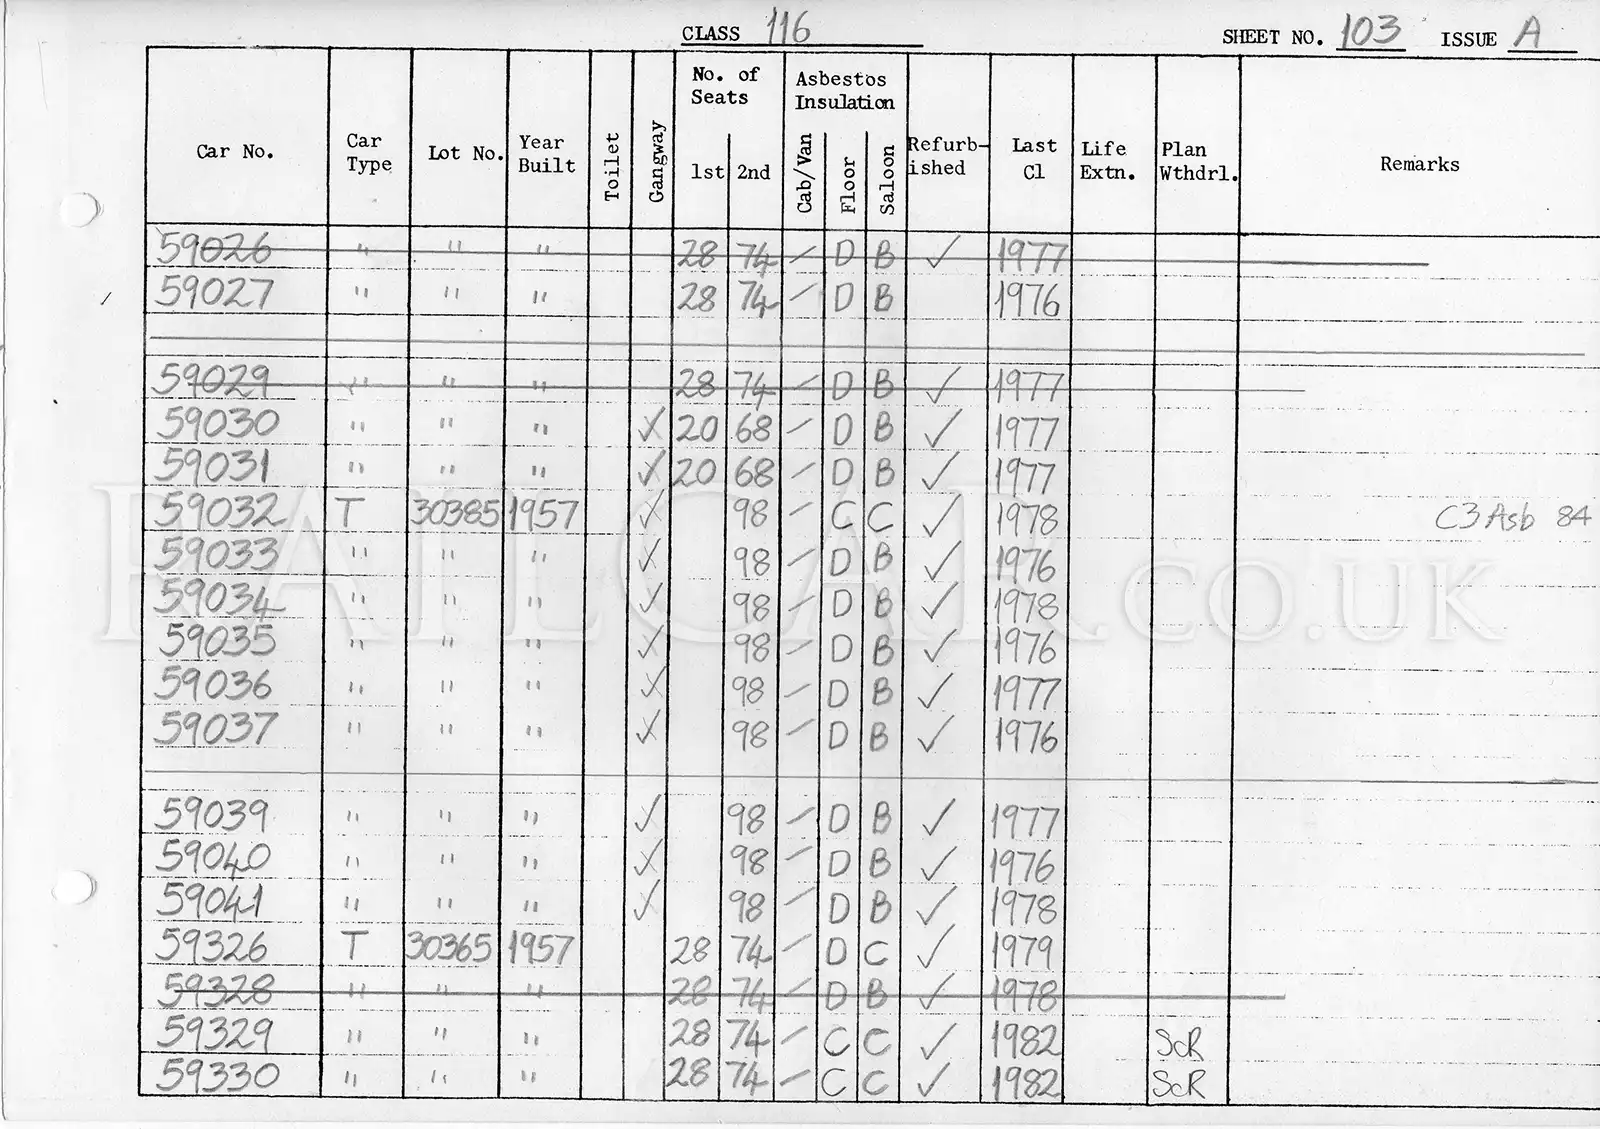 CLASS 116 SHEET NO. 103 ISSUE A
Car No. Car Type Lot No. Year Built Toilet Gangway No. of Seats 1st 2nd Asbestos Insulation Cab/Van Floor Saloon Refurb-ished Last Cl Life Extn. Plan Wthdrl. Remarks
59026 " " " 28 74 / D B ✓ 1977
59027 " " " 28 74 / D B 1976
59029 " " " 28 74 / D B ✓ 1977
59030 " " " ✓ 20 68 / D B ✓ 1977
59031 " " " ✓ 20 68 / D B ✓ 1977
59032 T 30385 1957 ✓ 98 / C C ✓ 1978 C3 Asb 84
59033 " " " ✓ 98 / D B ✓ 1976
59034 " " " ✓ 98 / D B ✓ 1978
59035 " " " ✓ 98 / D B ✓ 1976
59036 " " " ✓ 98 / D B ✓ 1977
59037 " " " ✓ 98 / D B ✓ 1976
59039 " " " ✓ 98 / D B ✓ 1977
59040 " " " ✓ 98 / D B ✓ 1976
59041 " " " ✓ 98 / D B ✓ 1978
59326 T 30365 1957 28 74 / D C ✓ 1979
59328 " " " 28 74 / D B ✓ 1978
59329 " " " 28 74 / C C ✓ 1982 ScR
59330 " " " 28 74 / C C ✓ 1982 ScR
RAILCAR.CO.UK